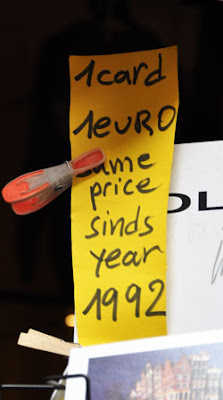 1card
1EURO
same
price
sinds
year
1992